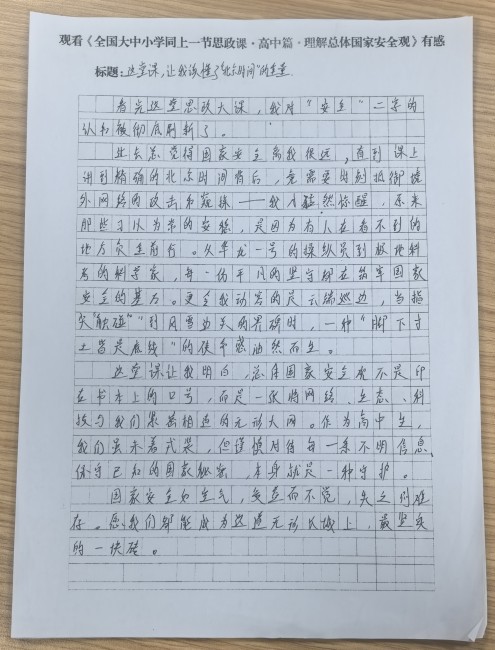 观看《全国大中小学同上一节思政课·高中篇·理解总体国家安全观》有感
标题：这堂课，让我读懂了“北京时间”的重量
看完这堂思政大课，我对“安全”二字的
认知被彻底刷新了。
过去总觉得国家安全离我很远，直到课上
讲到精确的北京时间背后，竟需要时刻抵御境
外网络的攻击和窥探——我才猛然惊醒，原来
那些习以为常的安稳，是因为有人在看不到的
地方负重前行。从华龙一号的操纵员到极地科
考的科学家，每一份平凡的坚守都在筑牢国家
安全的基石。更令我动容的是云端巡边，当指
尖“触碰”到风雪边关的界碑时，一种“脚下寸
土皆是底线”的使命感油然而生。
这堂课让我明白，总体国家安全观不是印
在书本上的口号，而是一张将网络、生态、科
技与我们紧密相连的无形大网。作为高中生，
我们虽未着戎装，但谨慎对待每一条不明信息、
保守已知的国家秘密，本身就是一种守护。
国家安全如空气，受益而不觉，失之则难
存。愿我们都能成为这道无形长城上，最坚实
的一块砖。